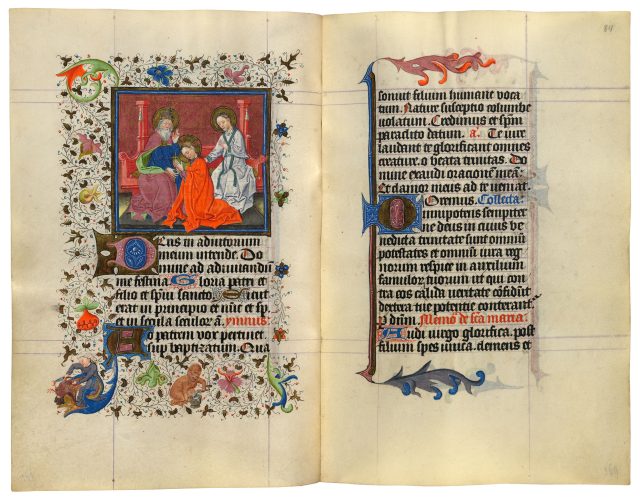 84
Deus in adiutorium
meum intende. Do
mine ad adiuvandū
me festina Gloria patri et
filio et spūi sancto. Sicut
erat in principio et nūc et sp̄.
et in secula seculor ā. ymnus.
patrem vox pertinet
sup baptizatum. Qua
sonuit filium humane voca
tum. Nature susceptio columbe
violatum. Credimus et sp̄m
paraclito datum. a. Te iure
laudant te glorificant omnes
creature. o beata trinitas. Do
mine exaudi oracionē meā.
Et clamor meus ad te veniat.
Oremus. Collecta.
Omnipotens sempiter
ne deus in cuius be
nedicta trinitate sunt omniū
potestates et omniū iura reg
norum respice in auxilium
famulor tuorum ut qui con
tra eos calida veritate cōfidūt
dextera tue potencie conterant.
P dn̄m. Memō de scā maria.
Audi virgo glorifica. post
filium spes unica. clemens et